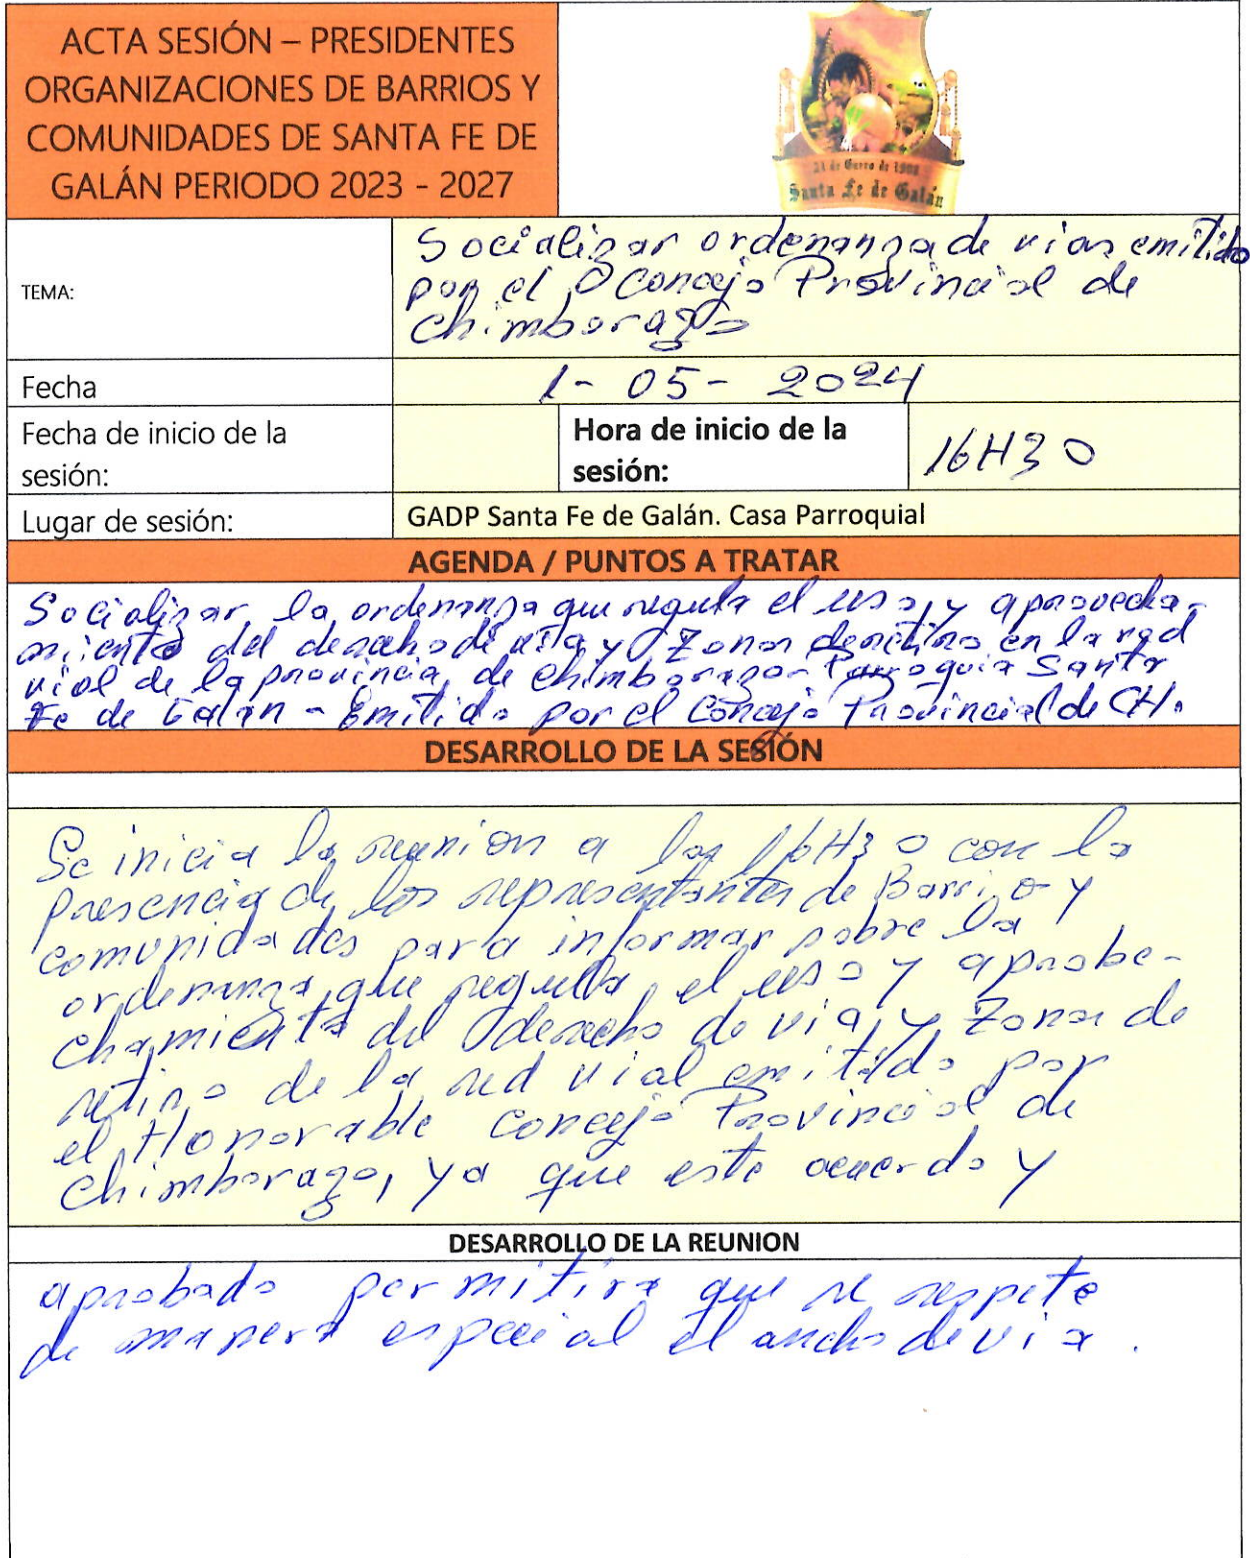 ACTA SESIÓN – PRESIDENTES
ORGANIZACIONES DE BARRIOS Y
COMUNIDADES DE SANTA FE DE
GALÁN PERIODO 2023 - 2027
Santa Fe de Galán
TEMA:
Socializar ordenanza de vias emitido
por el Concejo Provincial de
Chimborazo
Fecha
1-05-2024
Fecha de inicio de la
sesión:
Hora de inicio de la
sesión:
16H30
Lugar de sesión:
GADP Santa Fe de Galán. Casa Parroquial
AGENDA / PUNTOS A TRATAR
Socializar la ordenanza que regula el uso y aprovecha-
miento del derecho de via y Zonas de retiro en la red
vial de la provincia de Chimborazo - Parroquia Santa
Fe de Galan - Emitido por el Concejo Provincial de CH.
DESARROLLO DE LA SESIÓN
Se inicia la reunion a las 16H30 con la
presencia de los representantes de Barrio y
comunidades para informar sobre la
ordenanza que regula el uso y aprobe-
chamiento del derecho de via y Zonas de
retiro de la red vial emitido por
el Honorable Concejo Provincial de
Chimborazo, ya que este acuerdo y
DESARROLLO DE LA REUNION
aprobado permitira que se respete
de manera especial el ancho de via.